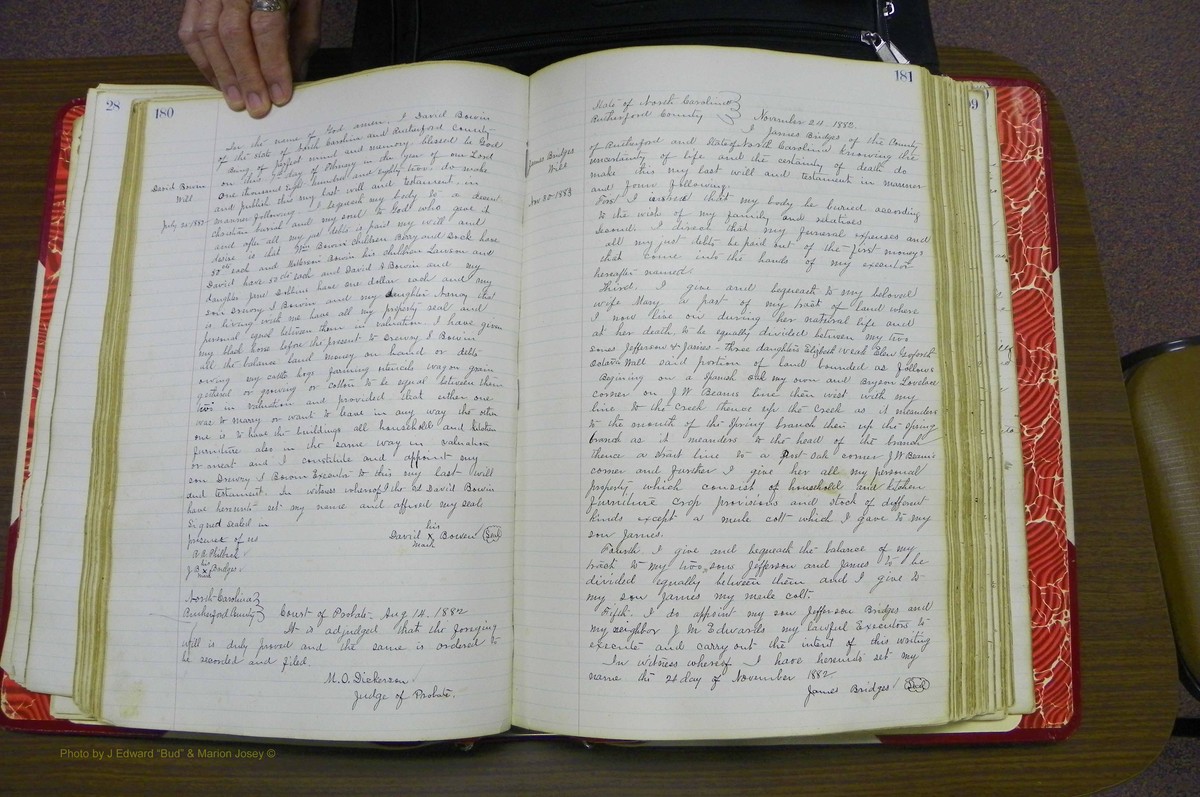 28
180
David Bowen
Will
July 20 1882
In the name of God amen. I David Bowen
of the state of North Carolina and Rutherford County
being of perfect mind and memory blessed be God
on this day of February in the year of our Lord
one thousand eight hundred and eighty two. do make
and publish this my last will and testament, in
manner following. I bequeath my body to a decent
christian burial and my soul to God who gave it
and after all my just debts is paid my will and
desire is that Wm Bowen children Berry and have
50 cts each and Bowen his children Lawson and
David have 50 cts each and David A Bowen and my
daughter Jane have one dollar each and my
son Drewry I Bowen and my daughter Nancy that
is living with me have all my property real and
personal equal between them in valuation. I have given
my black horse before the present to Drewry I Bowen
all the balance land money on hand or debts
owing my cattle hogs farming utensils wagon grain
gathered or growing or cotton to be equal between them
two in valuation and provided that either one
was to marry or want to leave in any way the other
one is to have the buildings all household and kitchen
furniture also in the same way in valuation
and I constitute and appoint my
son Drewry I Bowen Executor to this my last will
and testament. In witness whereof I the sd David Bowen
have hereunto set my name and affixed my seals
Signed sealed in
presence of us
David his x mark Bowen (Seal)
A. A. Philbeck
J. B his x mark Bridges
North Carolina
Rutherford County
Court of Probate. Aug 14. 1882
It is adjudged that the forgoing
will is duly proved and the same is ordered to
be recorded and filed.
M. O. Dickerson
Judge of Probate.
181
James Bridges
Will
Nov 30 1883
State of North Carolina
Rutherford County
November 24. 1882.
I James Bridges of the County
of Rutherford and State of North Carolina knowing the
uncertainty of life and the certainty of death do
make this my last will and testament in manner
and form following.
First I that my body be buried according
to the wish of my family and relatives
Second. I direct that my funeral expenses and
all my just debts be paid out of the first moneys
that come into the hands of my executor
hereafter named.
Third. I give and bequeath to my beloved
wife Mary a part of my tract of land where
I now live on during her natural life and
at her death, to be equally divided between my two
sons Jefferson & James - three daughters Elizabeth Ellen
Wall said portion of land bounded as follows
Begining on a Spanish oak my own and Bryson Lovelace
corner on J.W Beams line then west with my
line to the Creek thence up the Creek as it meanders
to the mouth of the Spring branch then up the spring
branch as it meanders to the head of the branch
thence a strait line to a Post Oak corner J.W Beams
corner and further I give her all my personal
property which consist of household and kitchen
furniture Crop provisions and stock of different
kinds except a mule colt which I gave to my
son James.
Fourth. I give and bequeath the balance of my
tract to my two sons Jefferson and James to be
divided equally between them and I give to
my son James my mule colt.
Fifth. I do appoint my son Jefferson Bridges and
my neighbor J. M Edwards my lawful Executors to
execute and carry out the intent of this writing
In witness whereof I have hereunto set my
name this 24 day of November 1882
James Bridges (Seal)
Photo by J Edward "Bud" & Marion Josey ©